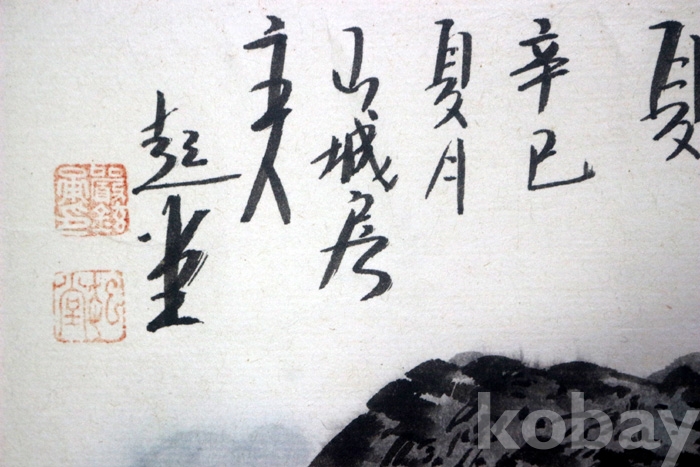 夏
辛巳
夏月
山城房
主人
堂
kobay